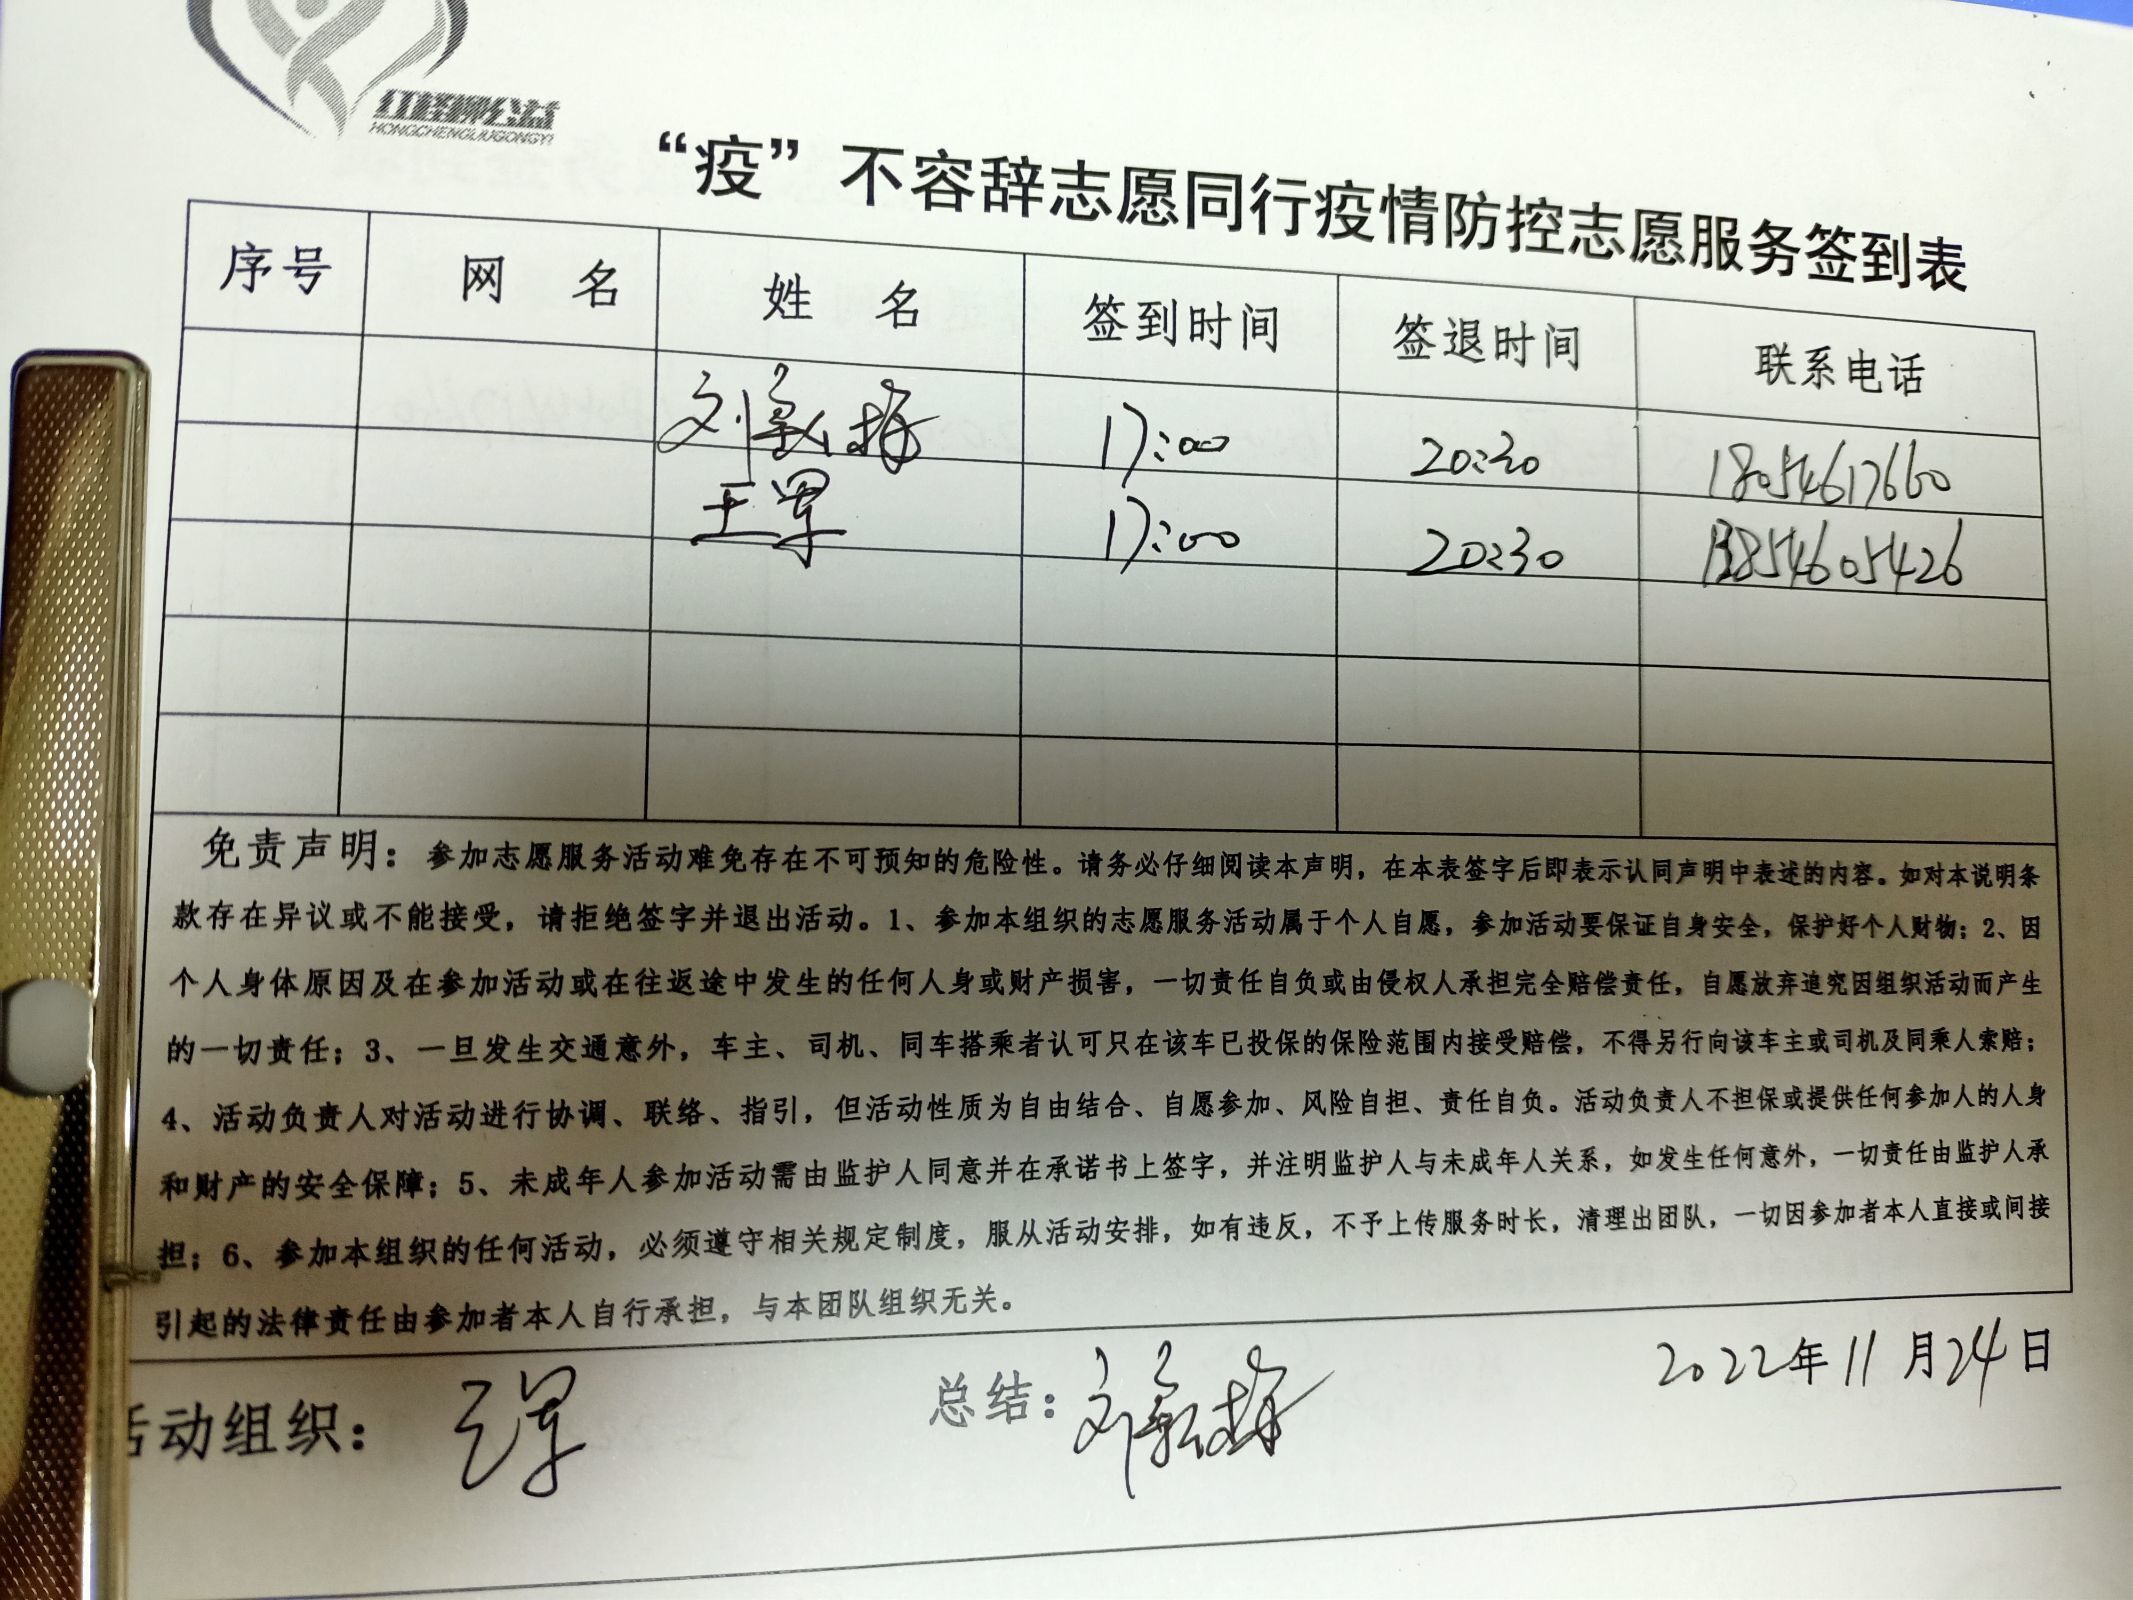 红柽柳公益
HONGCHENGLIUGONGYI
“疫”不容辞志愿同行疫情防控志愿服务签到表
序号 网 名 姓 名 签到时间 签退时间 联系电话
刘 梅 17:00 20:30 18054617660
王军 17:00 20:30 54605426
免责声明：参加志愿服务活动难免存在不可预知的危险性。请务必仔细阅读本声明，在本表签字后即表示认同声明中表述的内容。如对本说明条
款存在异议或不能接受，请拒绝签字并退出活动。1、参加本组织的志愿服务活动属于个人自愿，参加活动要保证自身安全，保护好个人财物；2、因
个人身体原因及在参加活动或在往返途中发生的任何人身或财产损害，一切责任自负或由侵权人承担完全赔偿责任，自愿放弃追究因组织活动而产生
的一切责任；3、一旦发生交通意外，车主、司机、同车搭乘者认可只在该车已投保的保险范围内接受赔偿，不得另行向该车主或司机及同乘人索赔；
4、活动负责人对活动进行协调、联络、指引，但活动性质为自由结合、自愿参加、风险自担、责任自负。活动负责人不担保或提供任何参加人的人身
和财产的安全保障；5、未成年人参加活动需由监护人同意并在承诺书上签字，并注明监护人与未成年人关系，如发生任何意外，一切责任由监护人承
担；6、参加本组织的任何活动，必须遵守相关规定制度，服从活动安排，如有违反，不予上传服务时长，清理出团队，一切因参加者本人直接或间接
引起的法律责任由参加者本人自行承担，与本团队组织无关。
活动组织：王军 总结：刘 梅 2022年11月24日